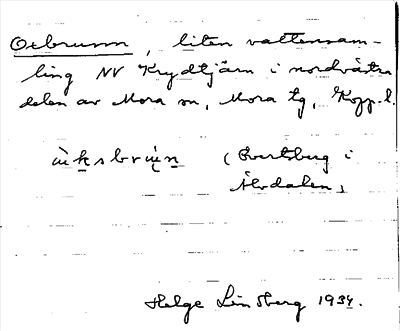 Oxbrunn, liten vattensam-
ling NV Krydtjärn i nordvästra
delen av Mora sn, Mora tg, Kopp. l.
(Evertsberg i
Älvdalen)
Helge Lindberg 1934.